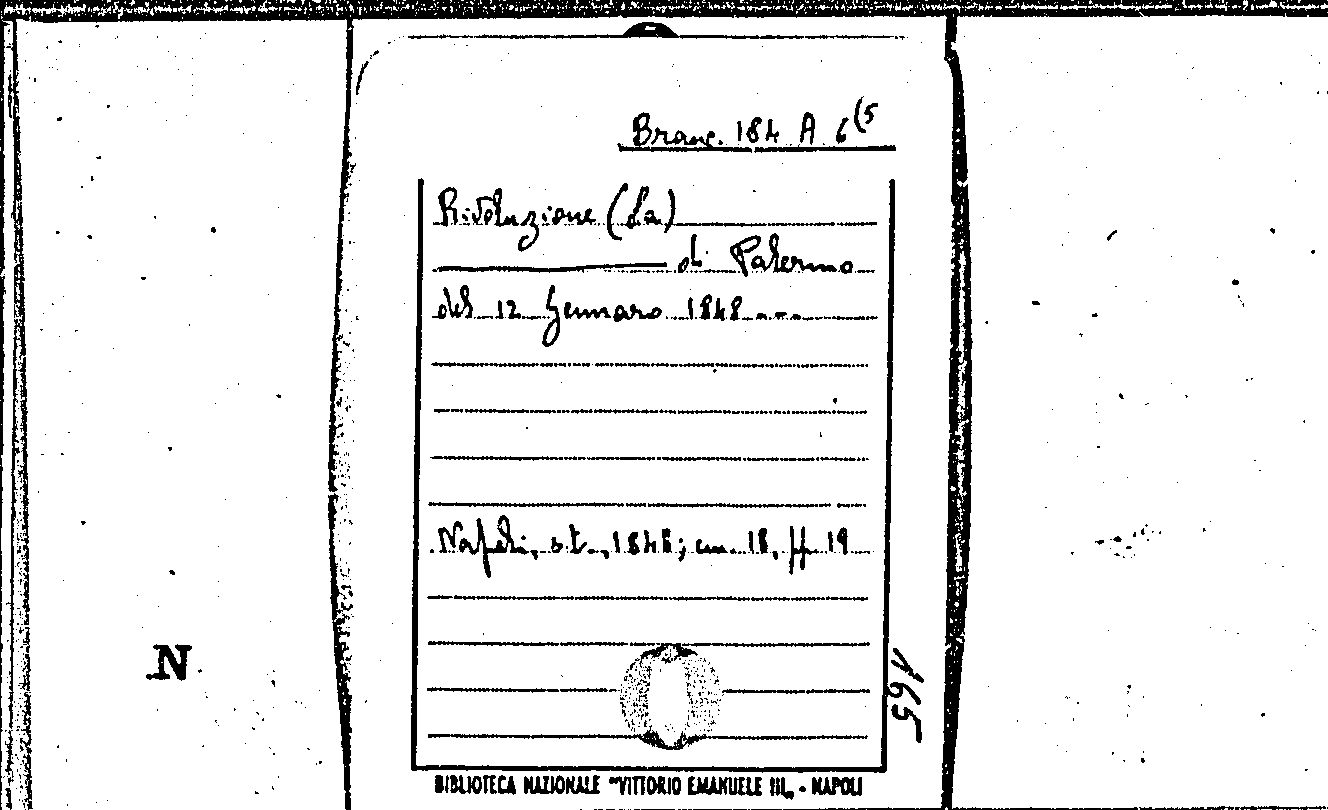 Branc. 184 A 6(5
Rivoluzione (La)
di Palermo
del 12 Gennaro 1848 ...
Napoli, s.t., 1848; cm. 18, pp. 19
N
A65
BIBLIOTECA NAZIONALE "VITTORIO EMANUELE III„ - NAPOLI